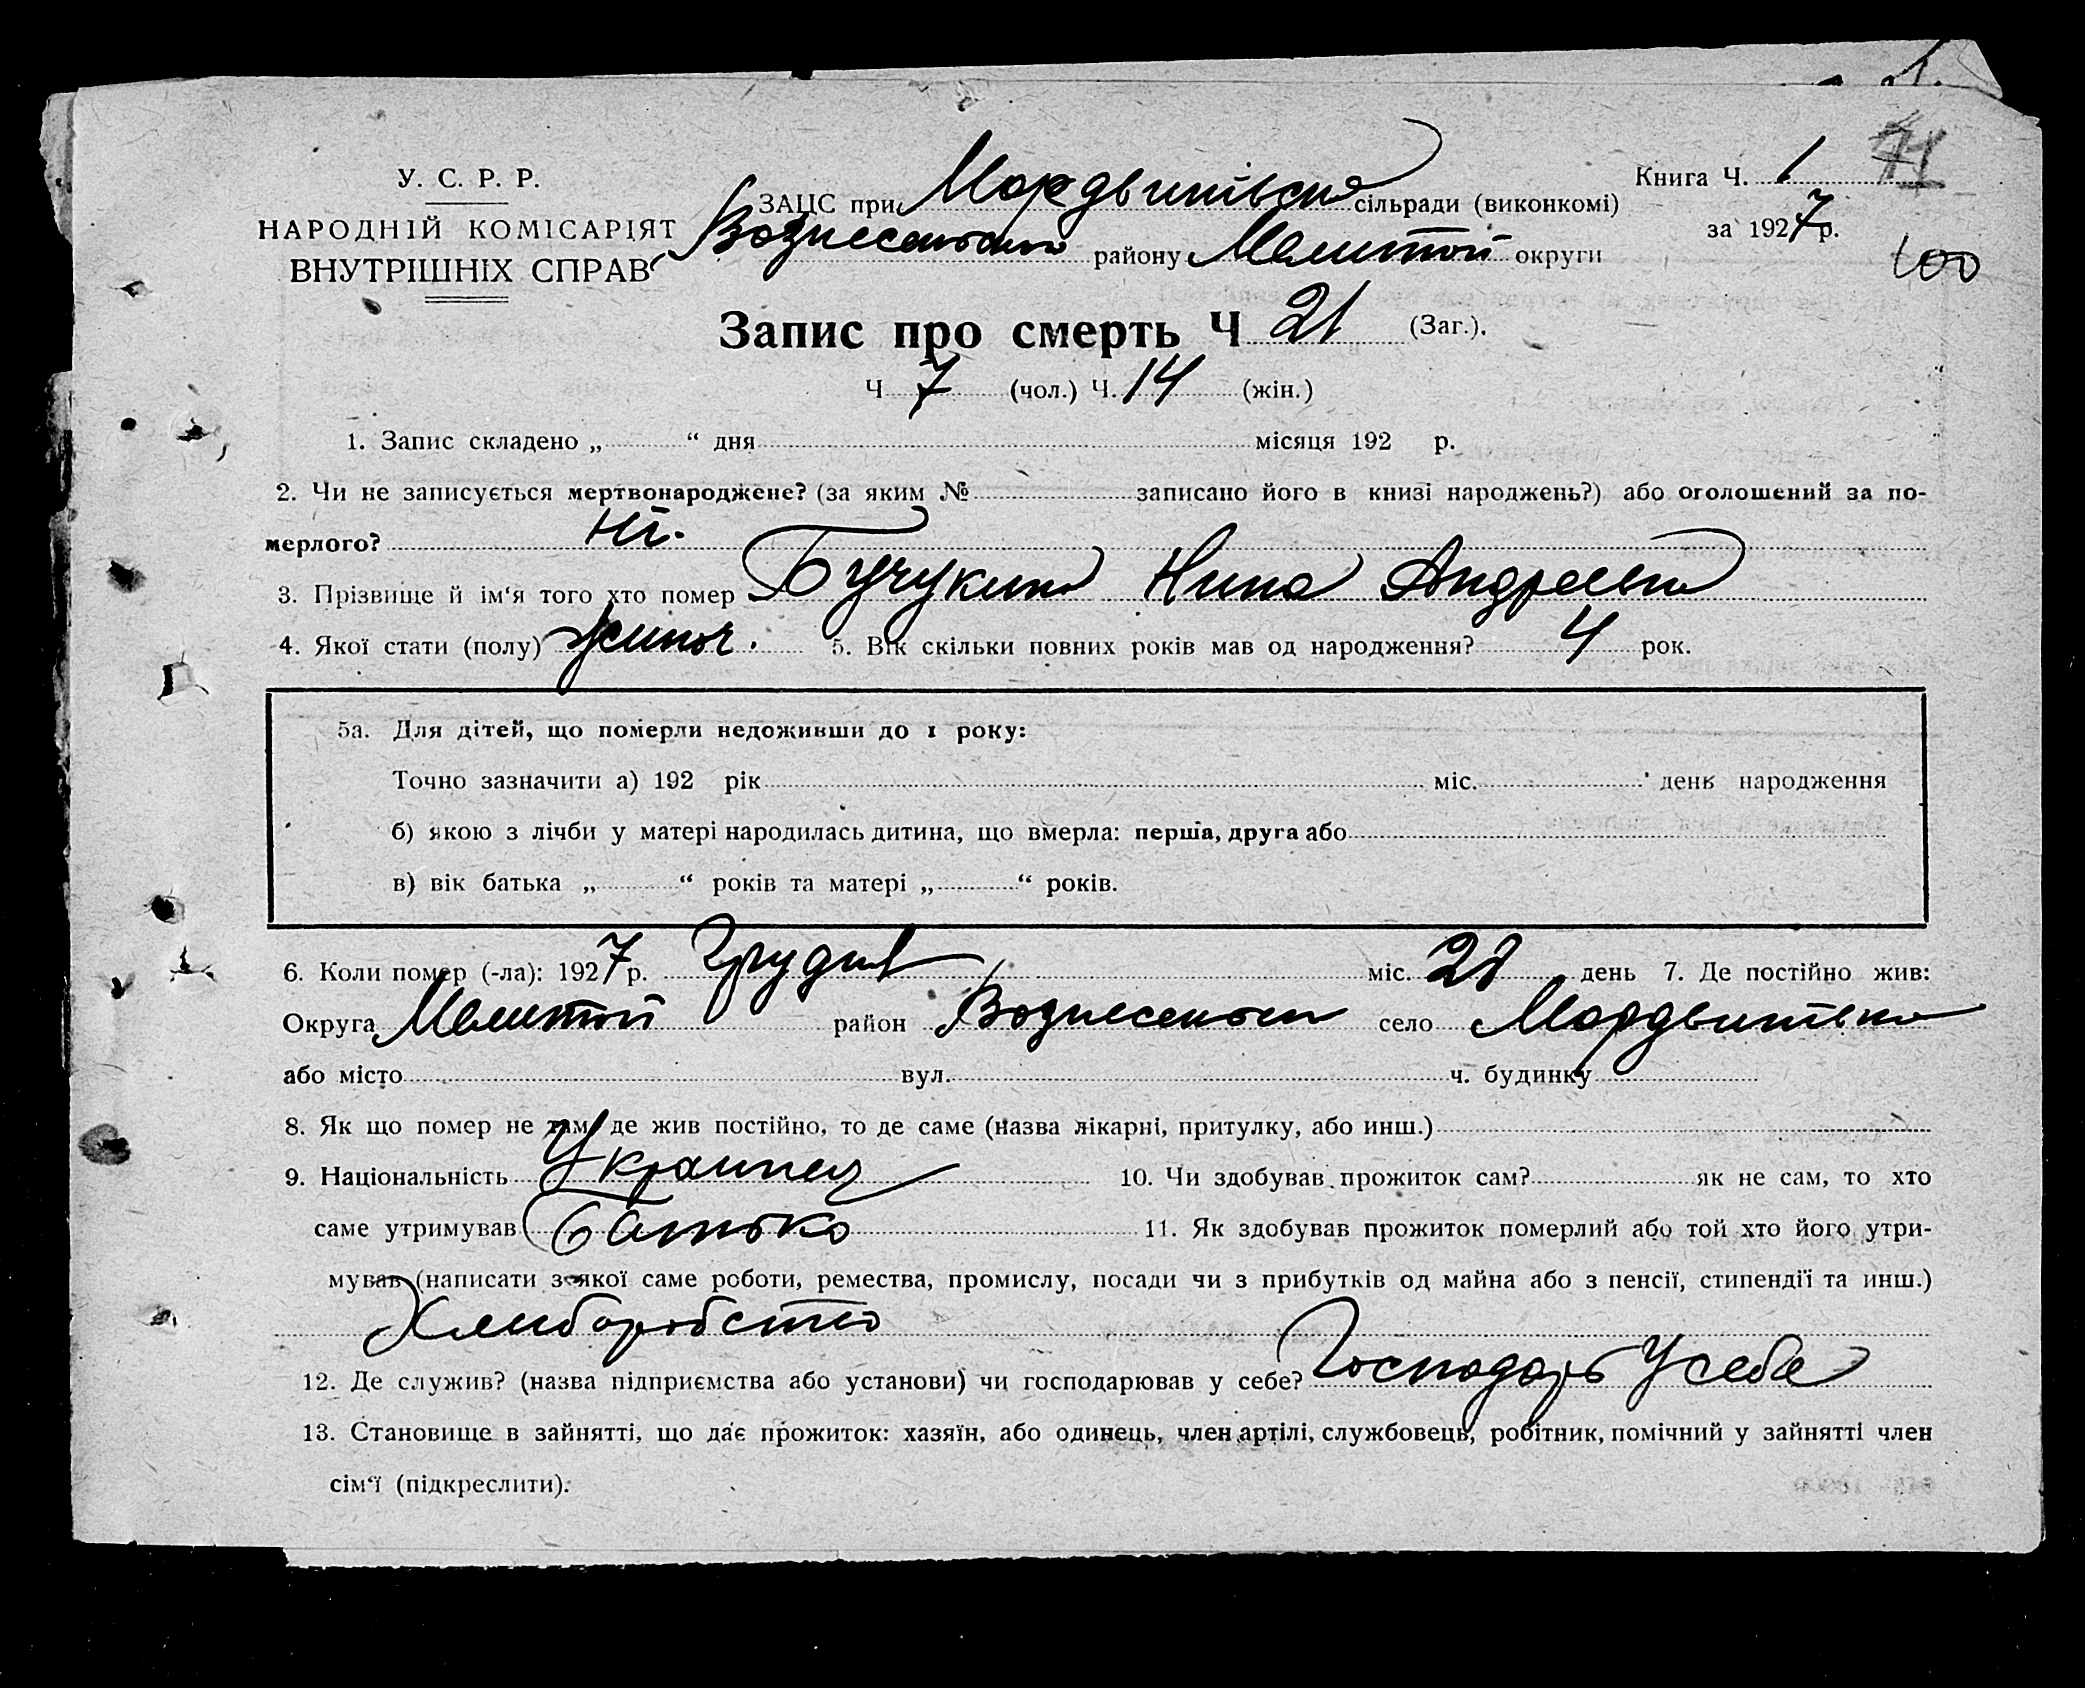 74
У. С. Р. Р.
НАРОДНІЙ КОМІСАРІЯТ
ВНУТРІШНІХ СПРАВ
ЗАЦС при Мордвинівскя сільради (виконкомі)
Вознесенськи району Мелитой округи
Книга Ч. 1
за 1927 р.
100
Запис про смерть Ч 21 (Заг.).
Ч 7 (чол.) Ч. 14 (жін.)
1. Запис складено „ “ дня місяця 192 р.
2. Чи не записується мертвонароджене? (за яким № записано його в книзі народжень?) або оголошений за по-
мерлого? Ні.
3. Прізвище й ім‘я того хто помер Бучукина Нина Андреевна
4. Якої стати (полу) жиноч. 5. Вік скільки повних років мав од народження? 4 рок.
5а. Для дітей, що померли недоживши до 1 року:
Точно зазначити а) 192 рік міс. день народження
б) якою з лічби у матері народилась дитина, що вмерла: перша, друга або
в) вік батька „ “ років та матері „ “ років.
6. Коли помер (-ла): 1927 р. Грудня міс. 28 день 7. Де постійно жив:
Округа Мелитой район Вознесенськи село Мордвинівка
або місто вул. ч. будинку
8. Як що помер не там, де жив постійно, то де саме (назва лікарні, притулку, або инш.)
9. Національність Украинец 10. Чи здобував прожиток сам? як не сам, то хто
саме утримував Батько 11. Як здобував прожиток померлий або той хто його утри-
мував (написати з якої саме роботи, ремества, промислу, посади чи з прибутків од майна або з пенсії, стипендії та инш.)
Хлиборобство
12. Де служив? (назва підприємства або установи) чи господарював у себе? Господарь у себе
13. Становище в зайнятті, що дає прожиток: хазяїн, або одинець, член артілі, службовець, робітник, помічний у зайнятті член
сім‘ї (підкреслити).